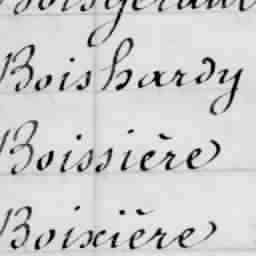 Boishardy
Boissière
Boixière